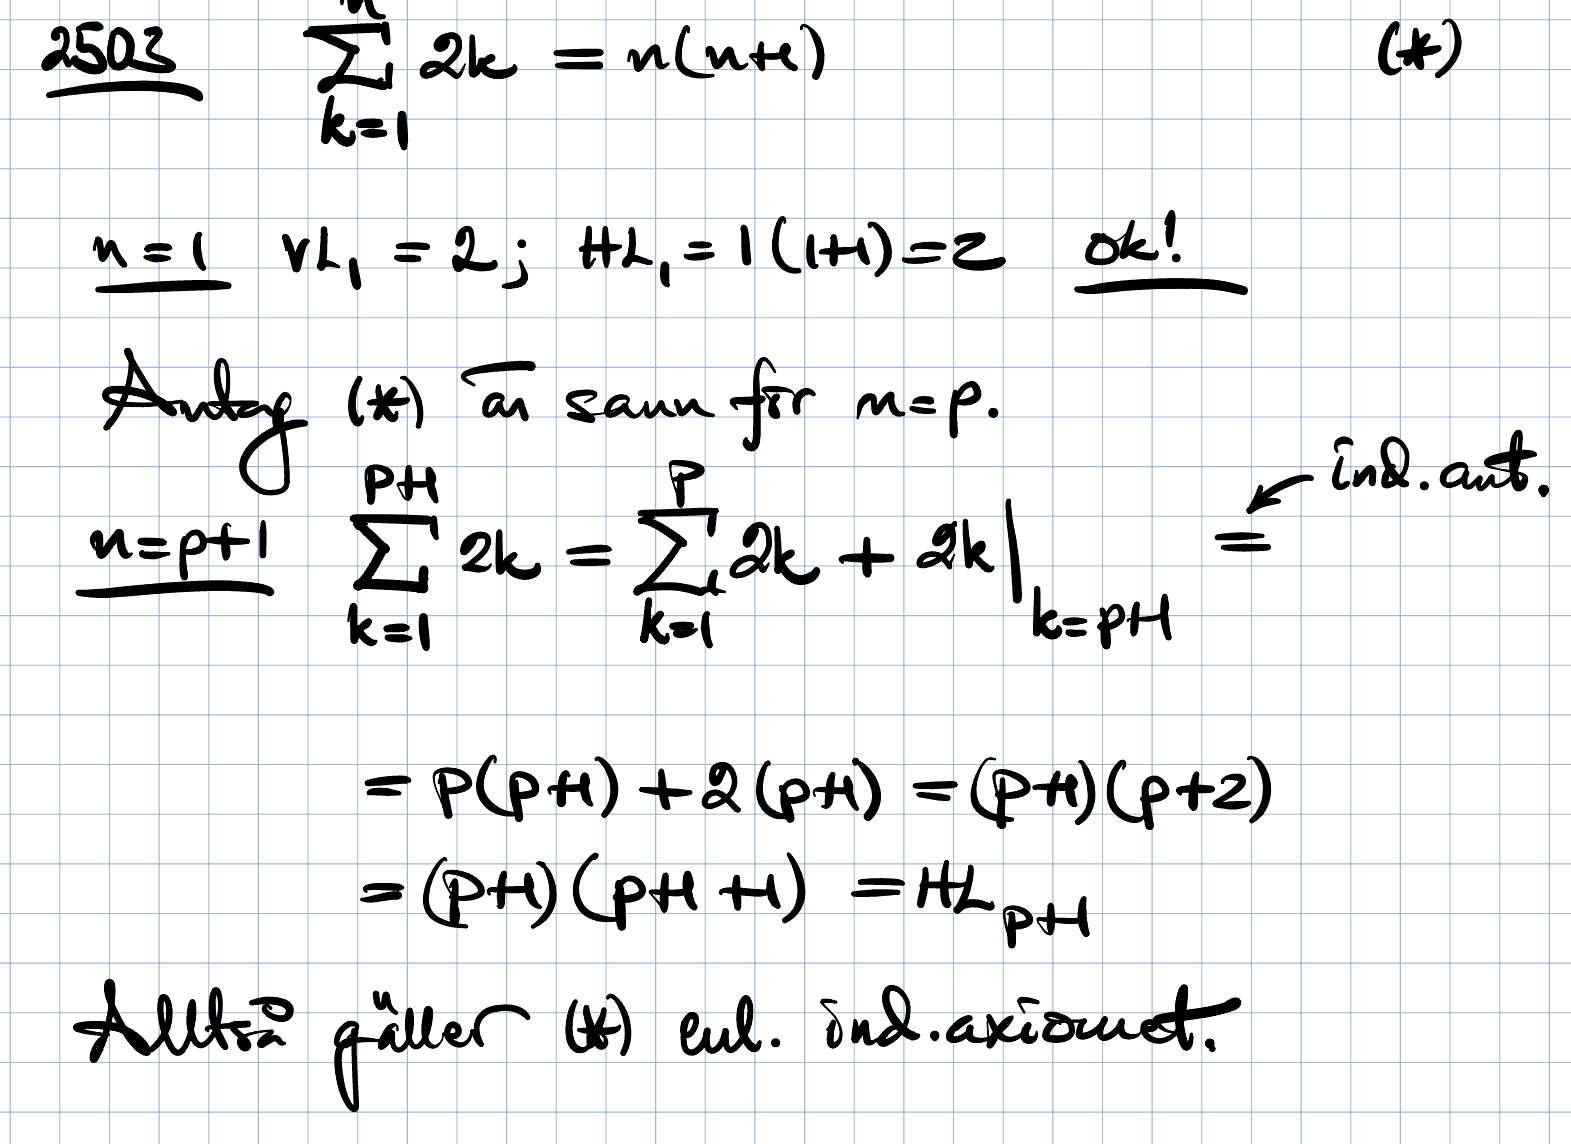 2503 ∑_{k=1}^{n} 2k = n(n+1) (*)
n=1 VL₁ = 2; HL₁ = 1(1+1) = 2 ok!
Antag (*) är sann för n=p.
n=p+1 ∑_{k=1}^{p+1} 2k = ∑_{k=1}^{p} 2k + 2k|_{k=p+1} = ind. ant.
= p(p+1) + 2(p+1) = (p+1)(p+2)
= (p+1)(p+1+1) = HL_{p+1}
Alltså gäller (*) enl. ind. axiomet.